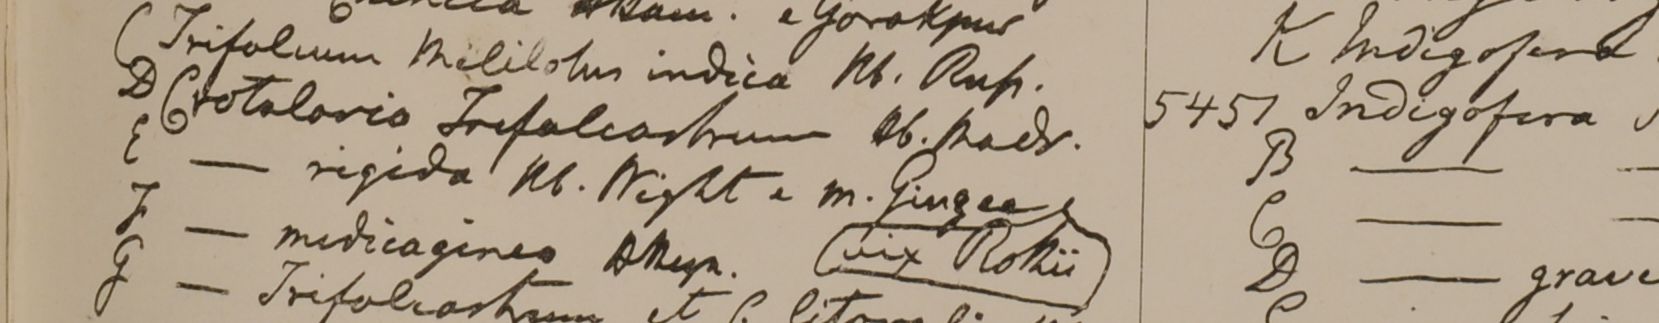 Ham. e Gorakpur
C Trifolium Melilotus indica Hb. Rup.
D Crotalaria Trifoliastrum Hb. Madr.
E — rigida Hb. Wight e m. Gingee
F — medicaginea HHeyn. (vix Rothii)
G — Trifoliastrum et C litoralis
K Indigofera
5451 Indigofera
B —
C —
D — grave